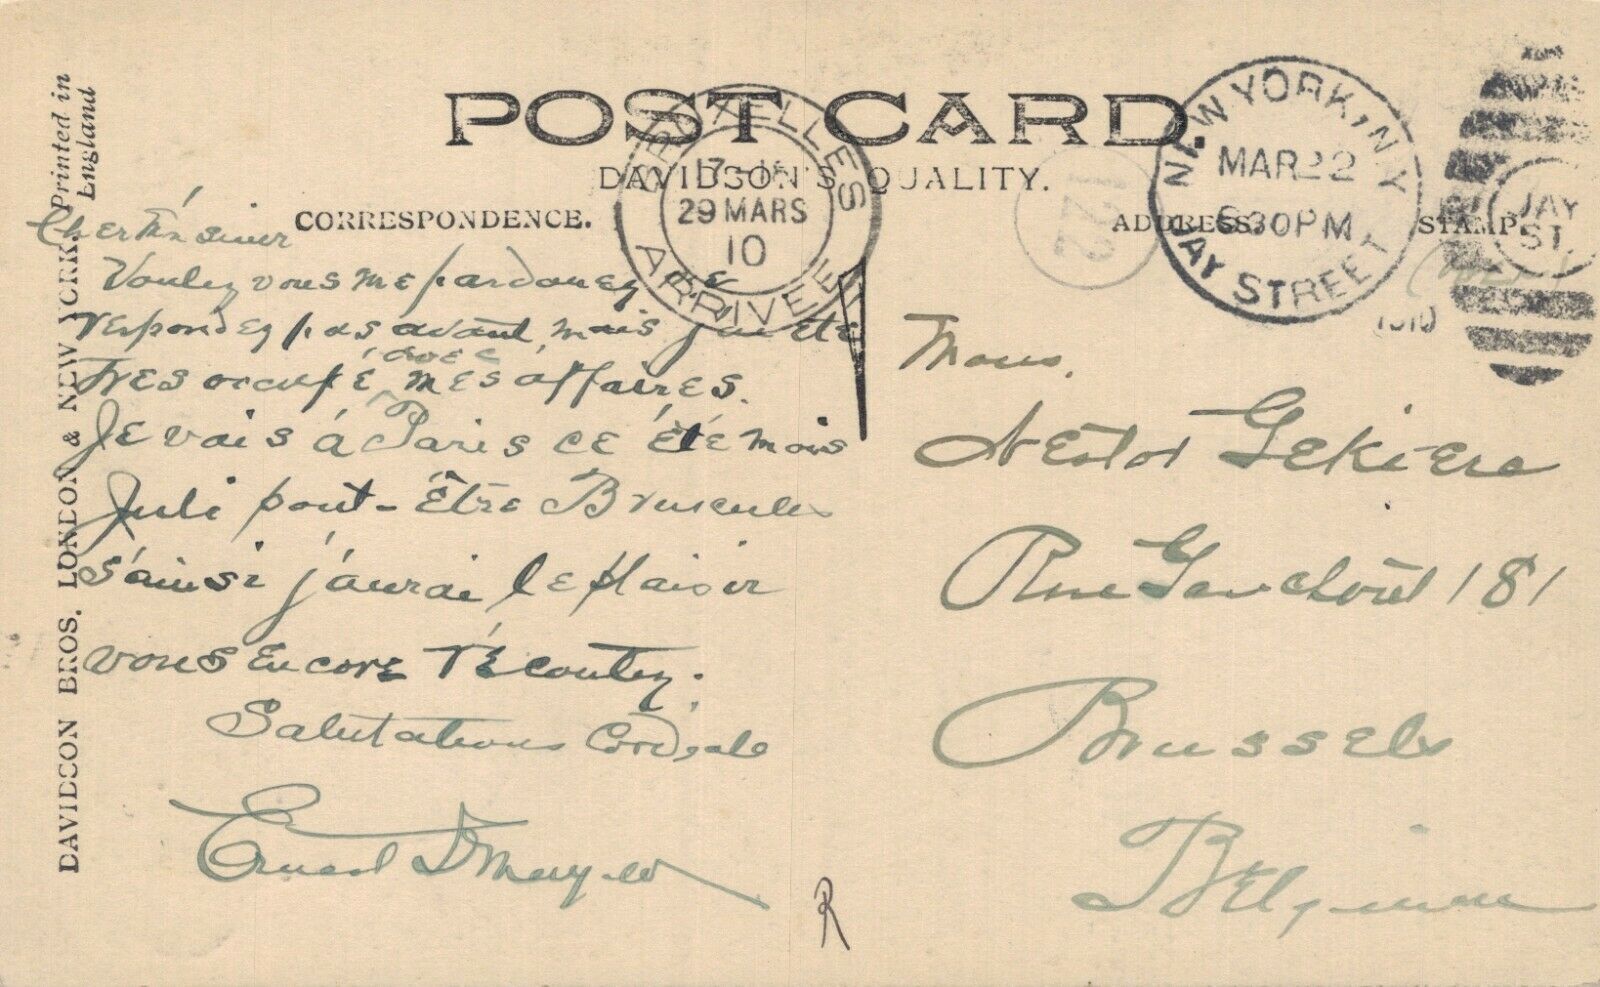 POST CARD.
DAVIDSON'S QUALITY.
CORRESPONDENCE.
ADDRESS.
STAMP.
Printed in
England
DAVIDSON BROS. LONDON & NEW YORK.
BRUXELLES
17-18
29 MARS
10
ARRIVEE
122
NEW YORK, N.Y.
MAR 22
630PM
JAY STREET
1910
JAY
ST.
Cher
Voulez vous me pardonez
respondez pas avant, mais j'ai été
avec
Tres occupé mes affaires.
Je vais á Paris ce été mois
Juli pout-être Bruxelles
s'ainsi j'aurai le plaisir
vous encore récoutez.
Salutations Cordiale
Ernest
Mons.
Nestor Gekiere
Rue 181
Brussels
Belgium
R